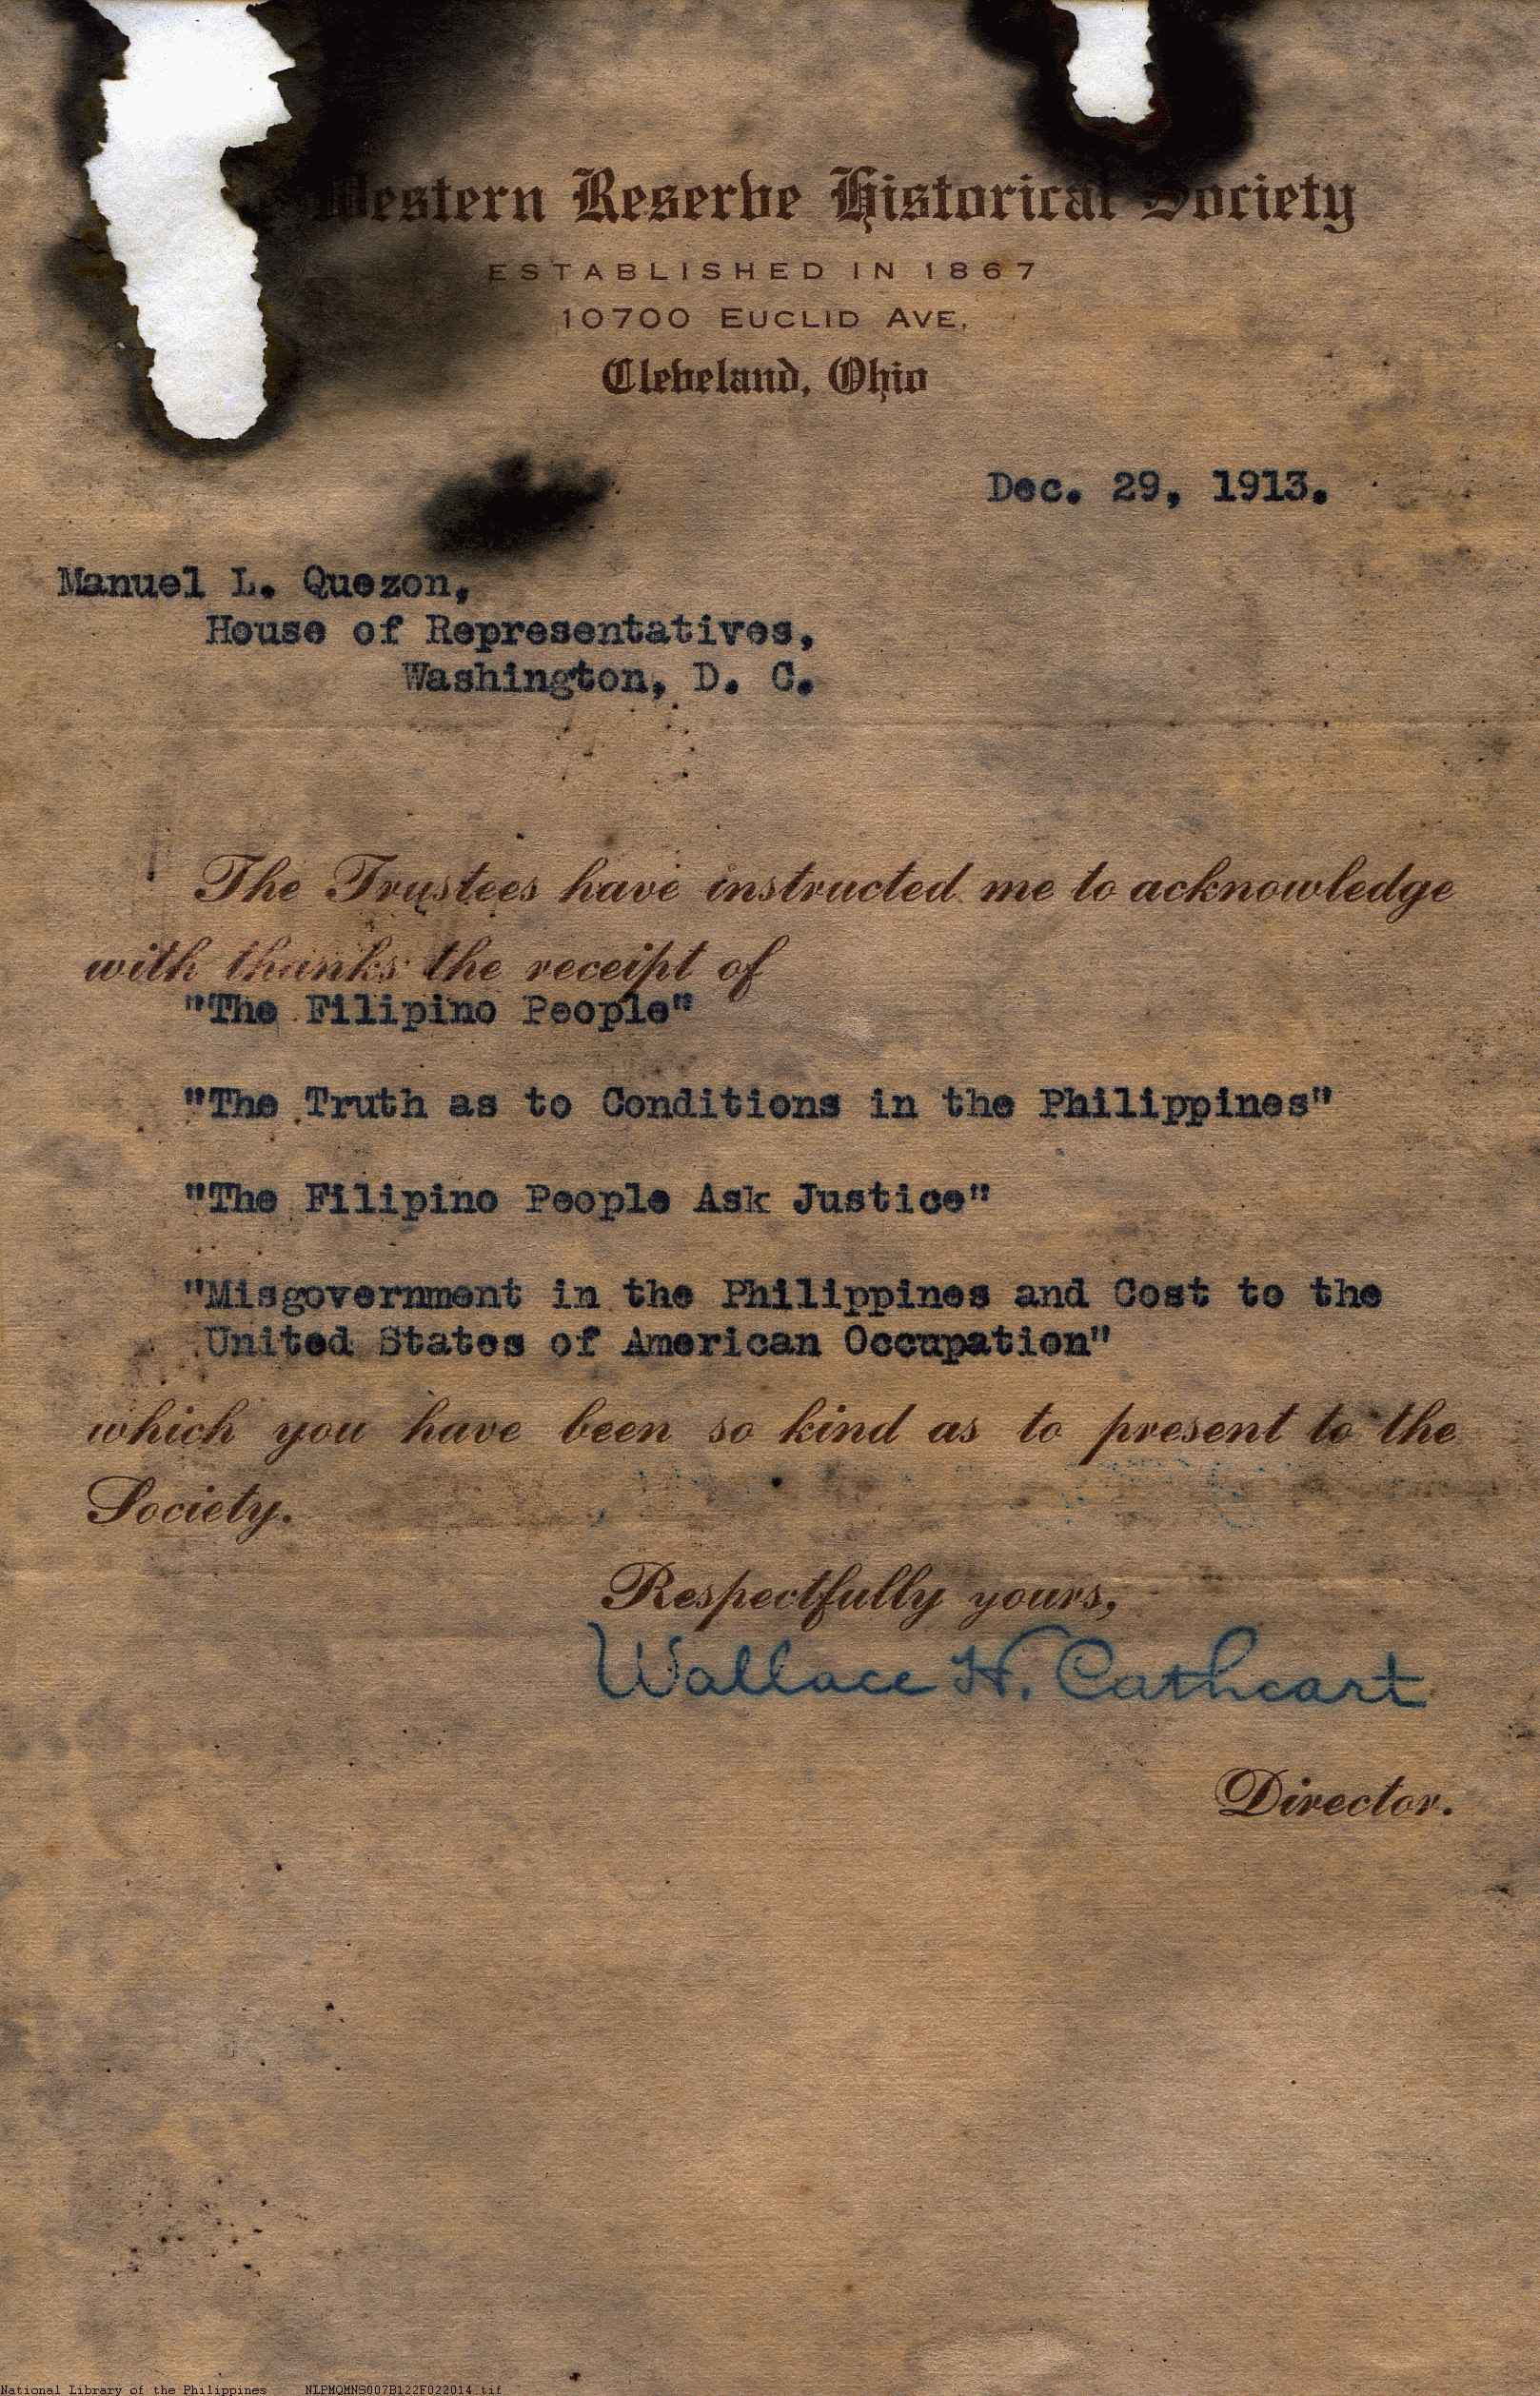 Western Reserve Historical Society
ESTABLISHED IN 1867
10700 EUCLID AVE,
Cleveland, Ohio
Dec. 29, 1913.
Manuel L. Quezon,
House of Representatives,
Washington, D. C.
The Trustees have instructed me to acknowledge
with thanks the receipt of
"The Filipino People"
"The Truth as to Conditions in the Philippines"
"The Filipino People Ask Justice"
"Misgovernment in the Philippines and Cost to the
United States of American Occupation"
which you have been so kind as to present to the
Society.
Respectfully yours,
Wallace H. Cathcart
Director.
National Library of the Philippines NLPMQMNS007B122F022014.tif